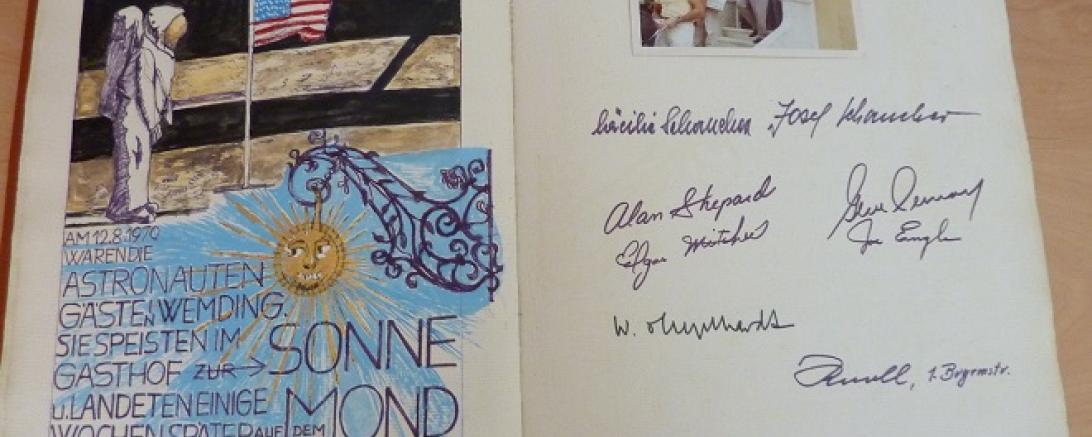 AM 12.8.1970
WAREN DIE
ASTRONAUTEN
GÄSTE IN WEMDING.
SIE SPEISTEN IM
GASTHOF ZUR → SONNE
U. LANDETEN EINIGE
WOCHEN SPÄTER AUF DEM MOND
Josef
Alan Shepard
Edgar Mitchell
Joe Engle
W. v. Engelhardt
1. Bürgermstr.